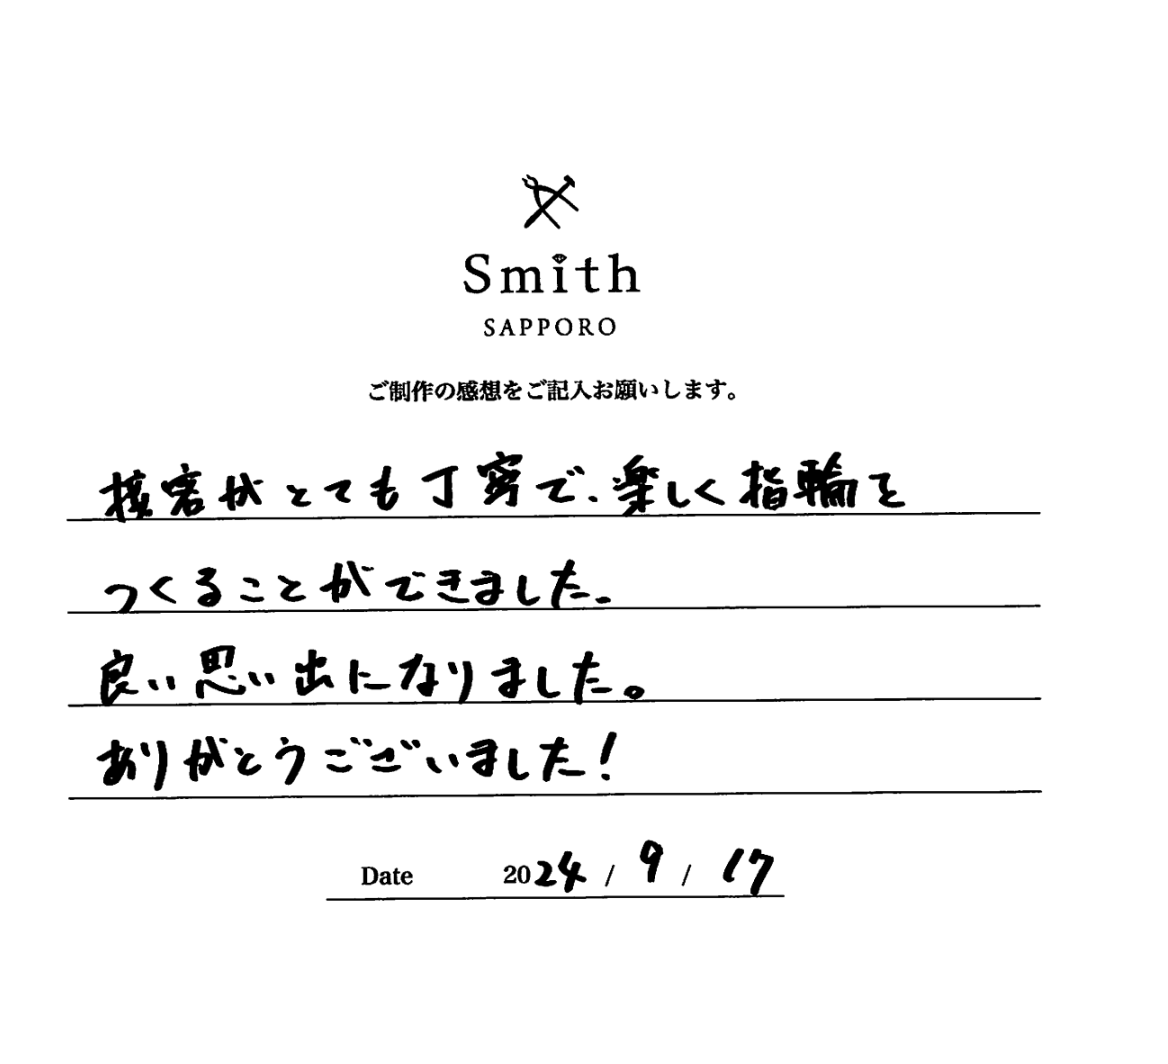 Smith
SAPPORO
ご制作の感想をご記入お願いします。
接客がとても丁寧で、楽しく指輪を
つくることができました。
良い思い出になりました。
ありがとうございました!
Date 2024 / 9 / 17